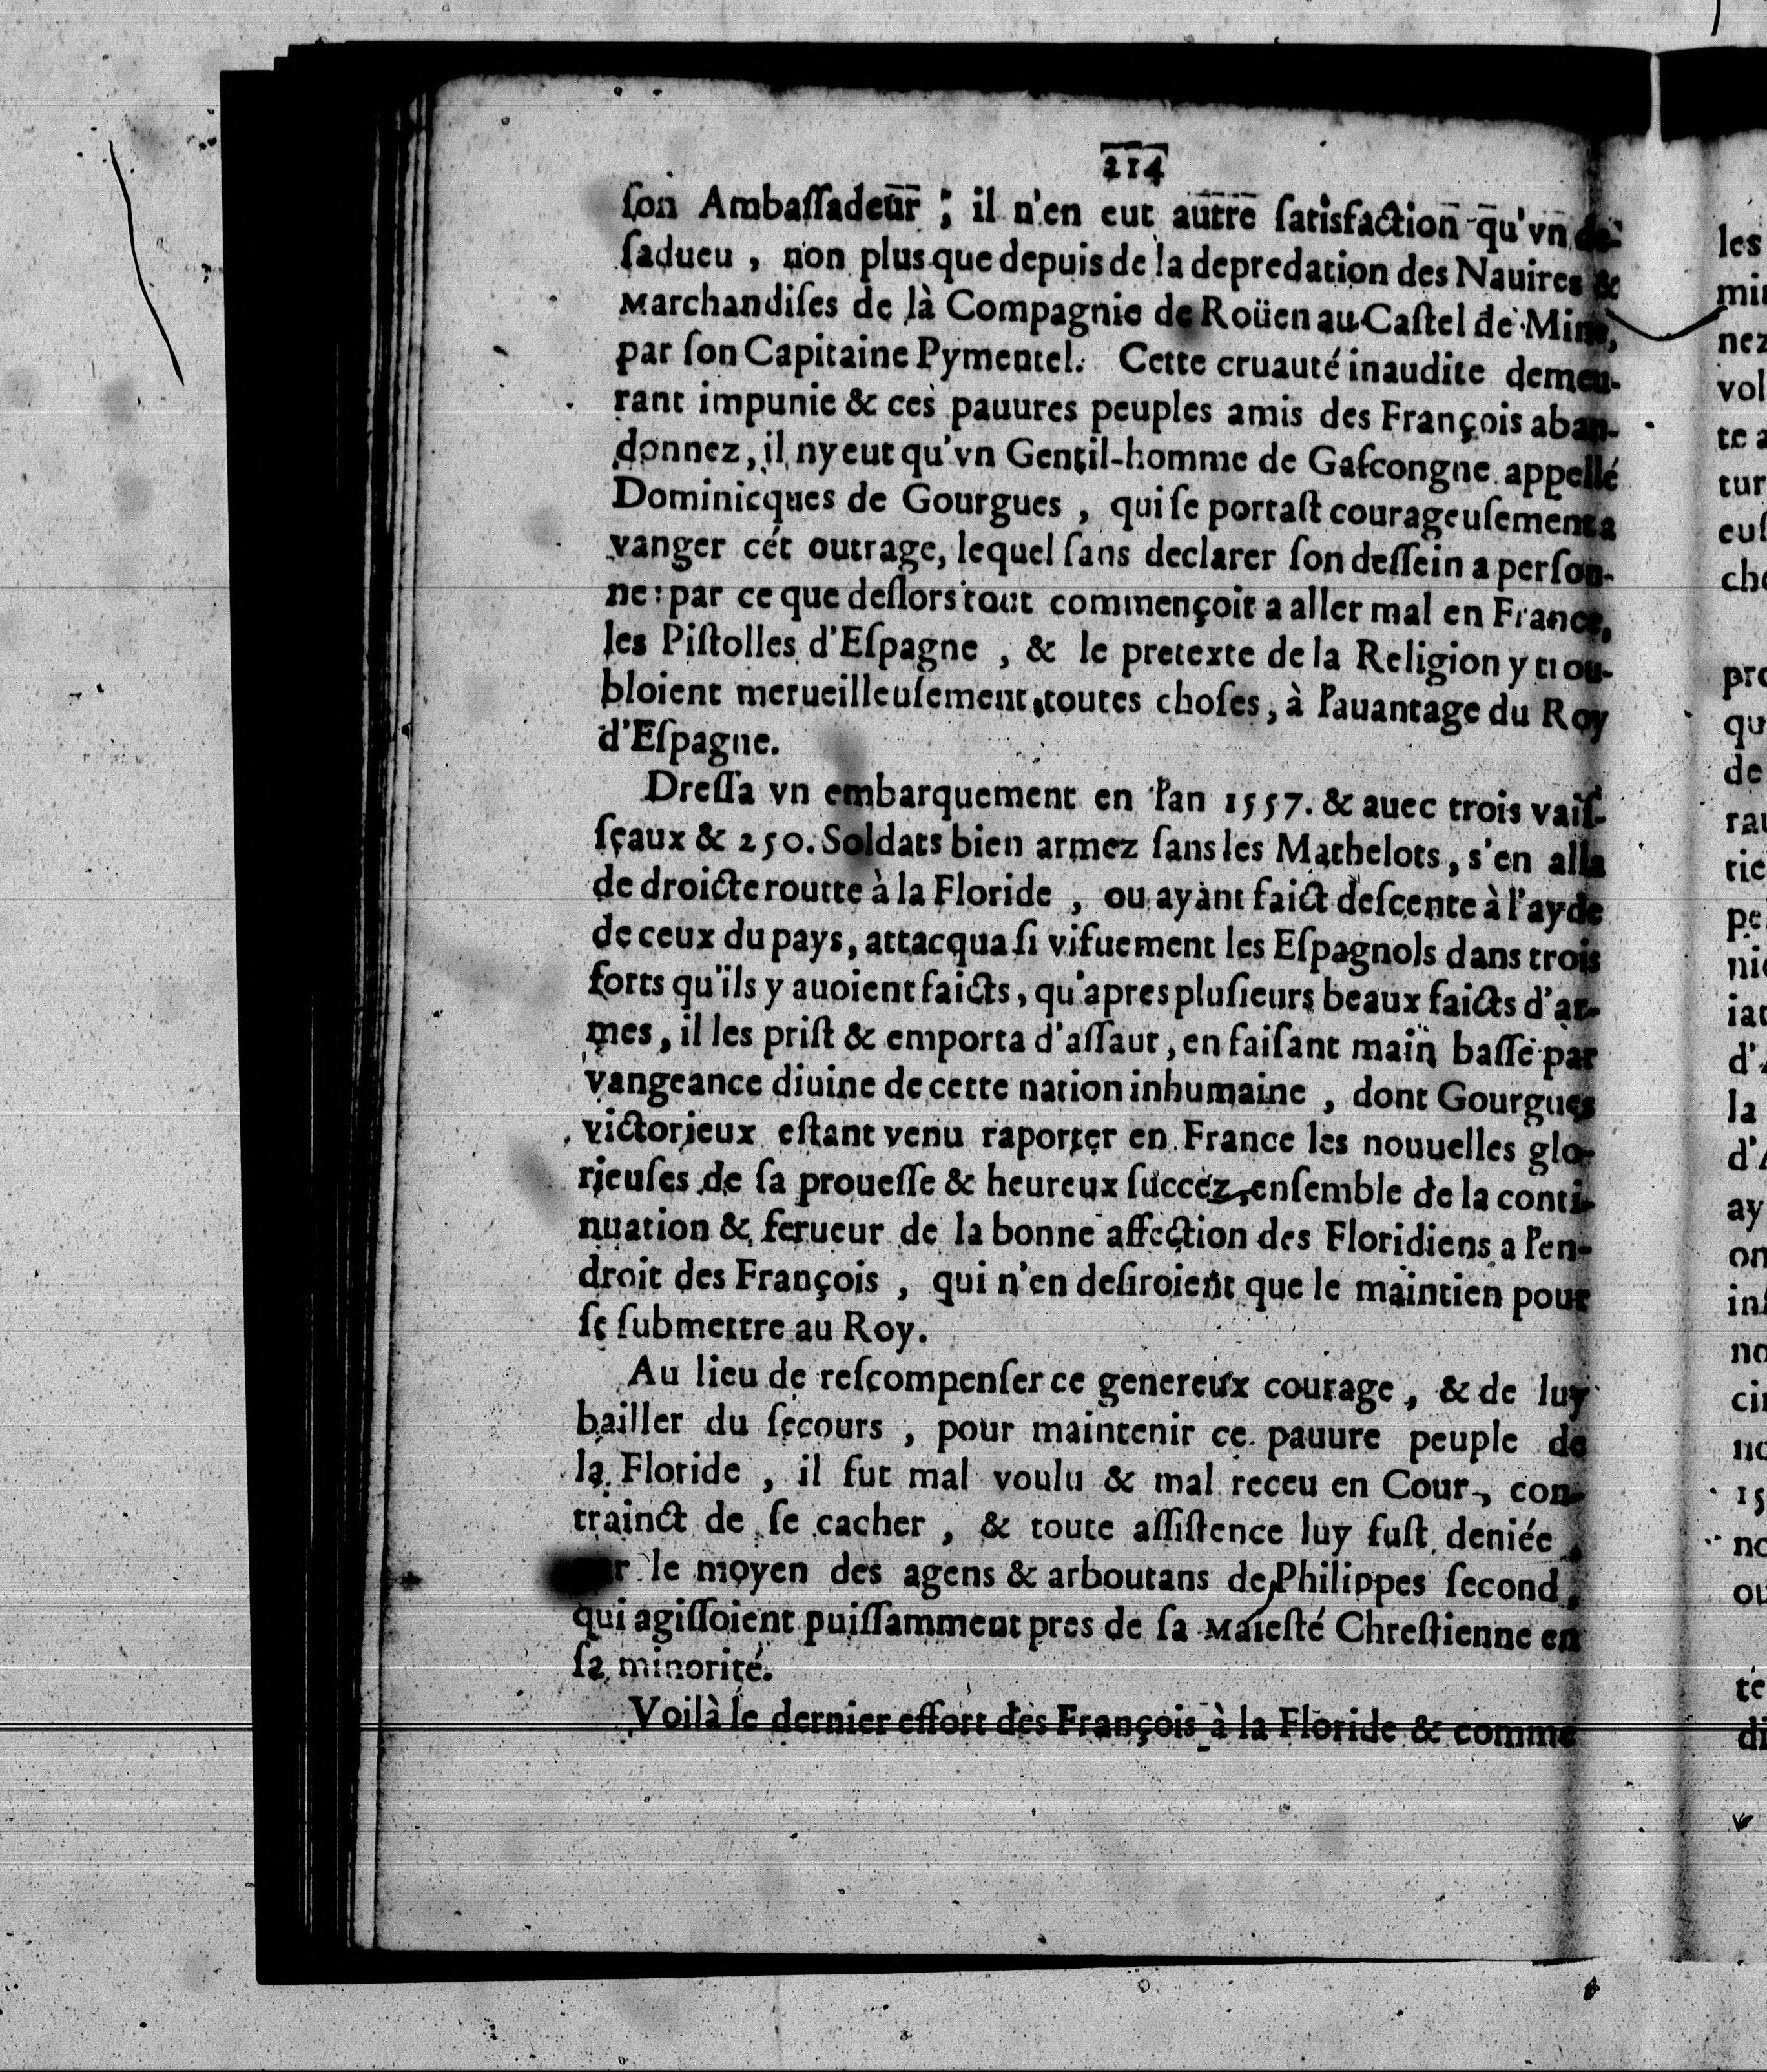 214
ſon Ambaſſadeur ; il n'en eut autre ſatisfaction qu'vn de-
ſadueu , non plus que depuis de la depredation des Nauires &
Marchandiſes de là Compagnie de Roüen au Caſtel de Mine,
par ſon Capitaine Pymentel. Cette cruauté inaudite demeu-
rant impunie & ces pauures peuples amis des François aban-
donnez, il ny eut qu'vn Gentil-homme de Gaſcongne appellé
Dominicques de Gourgues , qui ſe portaſt courageuſement a
vanger cét outrage, lequel ſans declarer ſon deſſein a perſon-
ne : par ce que deſlors tout commençoit a aller mal en France,
les Piſtolles d'Eſpagne , & le pretexte de la Religion y trou-
bloient merueilleuſement, toutes choſes, à l'auantage du Roy
d'Eſpagne.
Dreſſa vn embarquement en l'an 1557. & auec trois vaiſ-
ſeaux & 250. Soldats bien armez ſans les Mathelots, s'en alla
de droicte routte à la Floride , ou ayant faict deſcente à l'ayde
de ceux du pays, attacqua ſi vifuement les Eſpagnols dans trois
forts qu'ils y auoient faicts, qu'apres pluſieurs beaux faicts d'ar-
mes, il les priſt & emporta d'aſſaut, en faiſant main baſſe par
vangeance diuine de cette nation inhumaine , dont Gourgues
victorieux eſtant venu raporter en France les nouuelles glo-
rieuſes de ſa proueſſe & heureux ſuccez, enſemble de la conti-
nuation & ferueur de la bonne affection des Floridiens a l'en-
droit des François , qui n'en deſiroient que le maintien pour
ſe ſubmettre au Roy.
Au lieu de reſcompenſer ce genereux courage , & de luy
bailler du ſecours , pour maintenir ce pauure peuple de
la Floride , il fut mal voulu & mal receu en Cour, con-
trainct de ſe cacher , & toute aſſiſtence luy fuſt deniée ,
le moyen des agens & arboutans de Philippes ſecond ,
qui agiſſoient puiſſamment pres de ſa Maieſté Chreſtienne en
ſa minorité.
Voilà le dernier effort des François à la Floride & comme